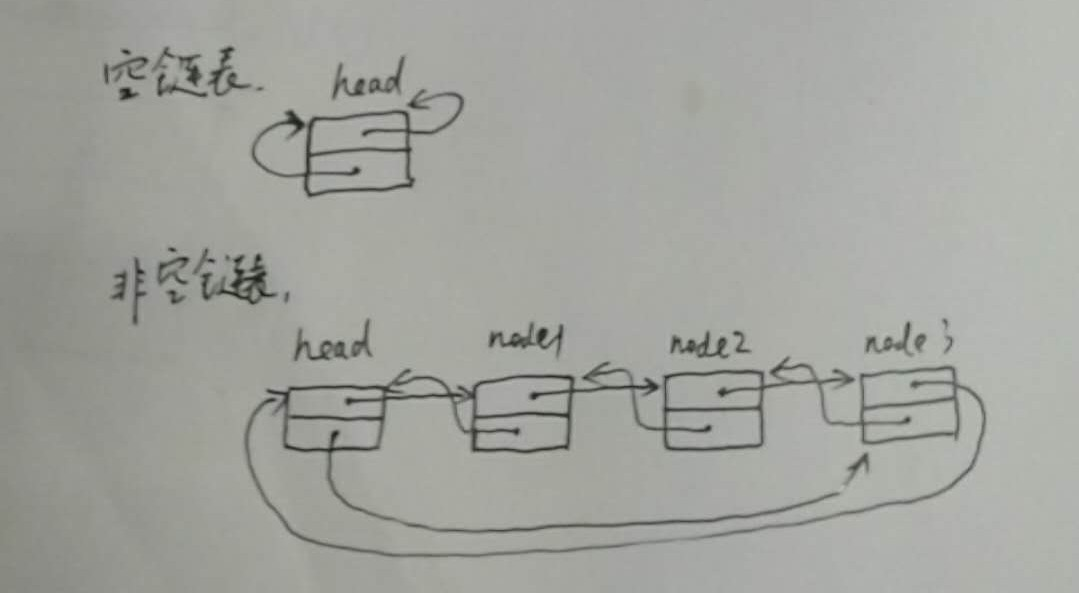 空链表.
head
非空链表,
head node1 node2 node3